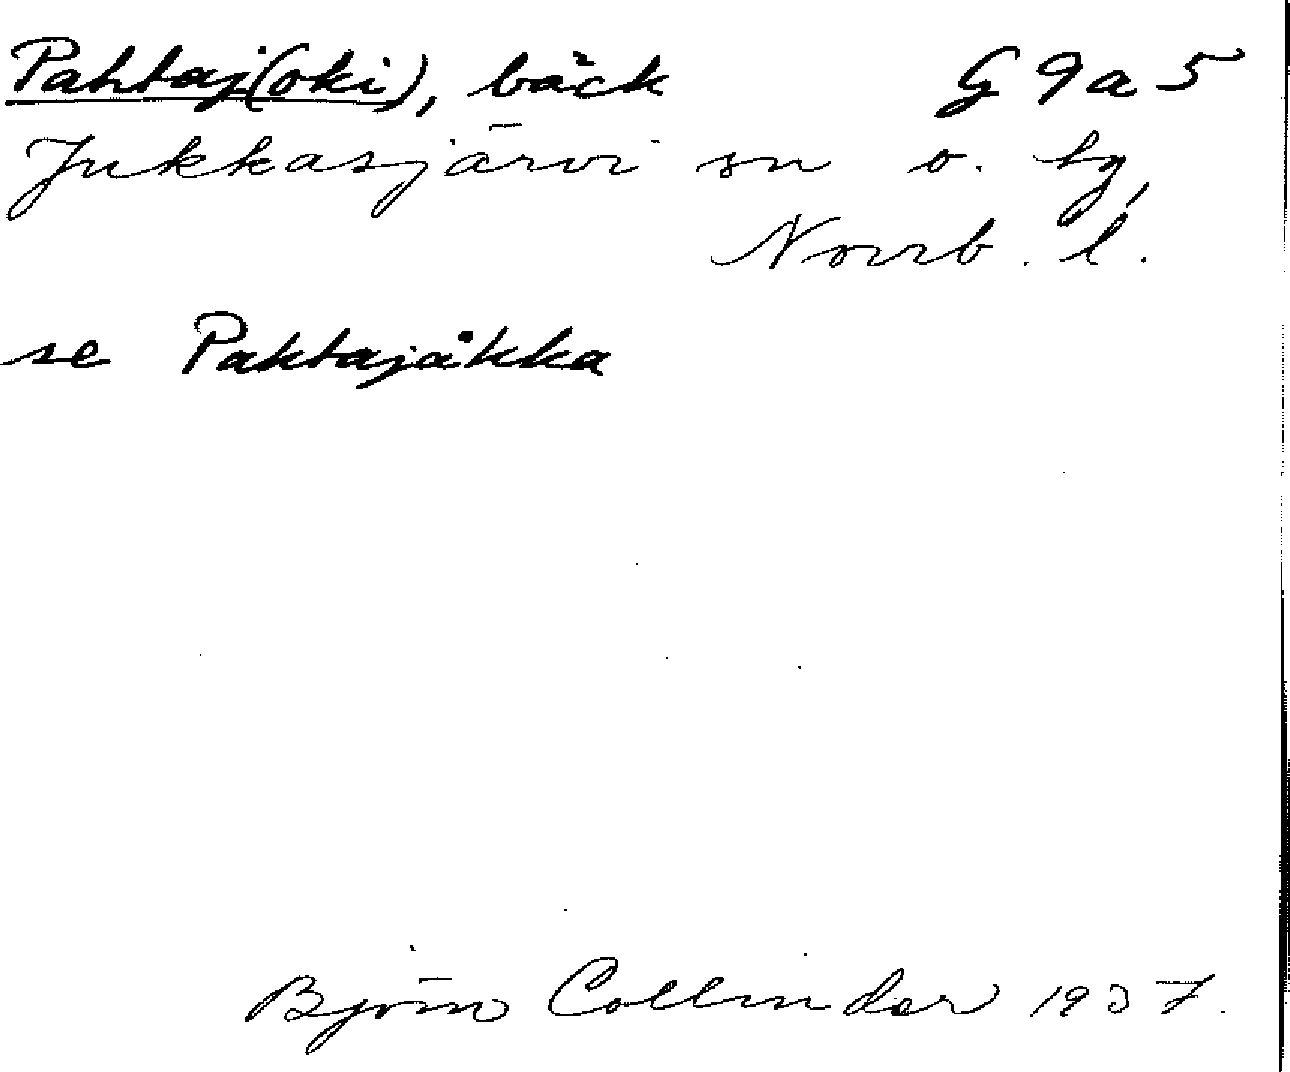 Pahtaj(oki), bäck G 9 a 5
Jukkasjärvi sn o. tg,
Norrb. l.
se Pahtajåkka
Björn Collinder 1937.